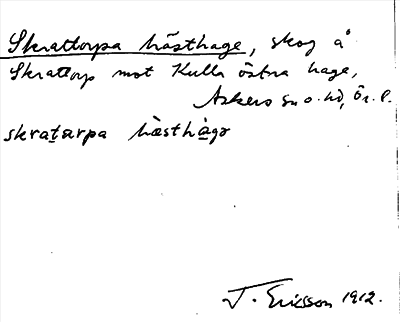 Skrattorpa hästhage, skog å
Skrattorp mot Kulla östra hage,
Askers sn o. hd, Ör. l.
skratarpa hästhage
T. Ericsson 1912.